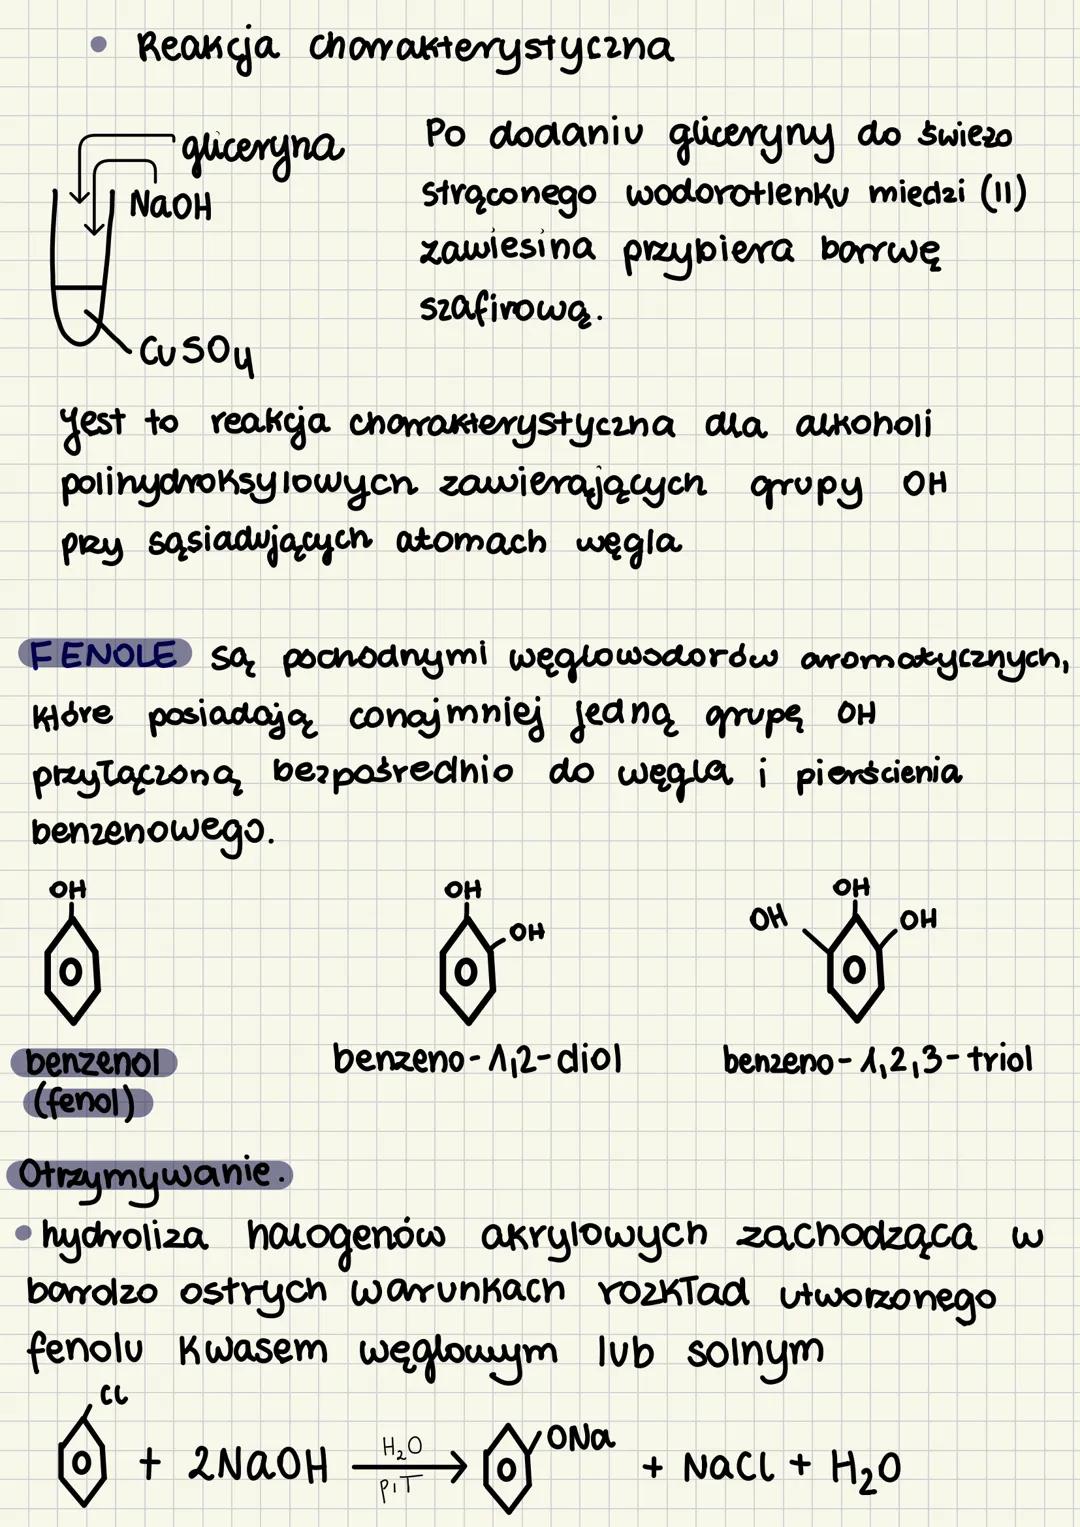 • Reakcja charakterystyczna
gliceryna
NaOH
CuSO4
Po dodaniu gliceryny do świeżo
strąconego wodorotlenku miedzi (II)
zawiesina przybiera barwę
szafirową.
Jest to reakcja charakterystyczna dla alkoholi
polihydroksylowych zawierających grupy OH
przy sąsiadujących atomach węgla
FENOLE są pochodnymi węglowodorów aromatycznych,
które posiadają conajmniej jedną grupę OH
przyłączoną bezpośrednio do węgla i pierścienia
benzenowego.
OH
OH
OH
OH
OH
OH
benzenol
(fenol)
benzeno-1,2-diol
benzeno-1,2,3-triol
Otrzymywanie.
• hydroliza halogenów akrylowych zachodząca w
bardzo ostrych warunkach rozkład utworzonego
fenolu kwasem węglowym lub solnym
Cl
+ 2NaOH
H₂O
p,T
ONa
+ NaCl + H₂O